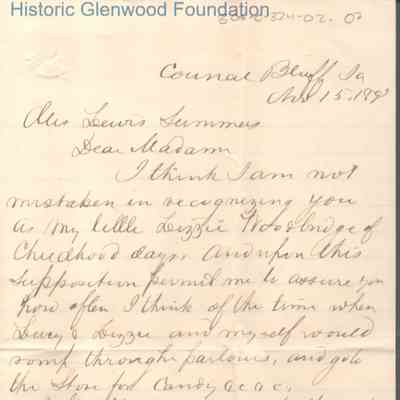 Historic Glenwood Foundation
Council Bluff Ia
Nov 15. 189
Mrs Lewis Summers
Dear Madam
I think I am not
mistaken in recognizing you
as my little Lizzie Woodbridge of
Childhood days. And upon this
supposition permit me to assure you
how often I think of the time when
Lucy & Lizzie and myself would
romp through parlours, and go to
the Store for Candy &c &c.